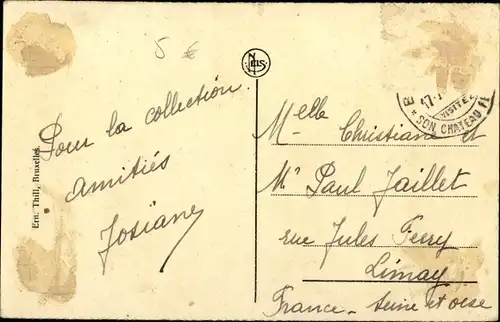 5 €
NELS
Ern. Thill, Bruxelles.
Pour la collection
amitiés
Josiane
17
VISITEZ
SON CHATEAU FE
Melle Christiane et
Mr Paul Jaillet
rue Jules Ferry
Limay
France - Seine et oise